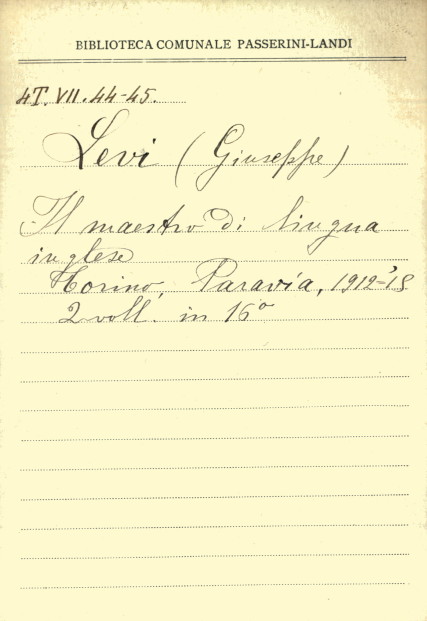 BIBLIOTECA COMUNALE PASSERINI-LANDI
4T. VII. 44-45.
Levi (Giuseppe)
Il maestro di lingua
inglese
Torino, Paravia, 1912-'18
2 voll. in 16°